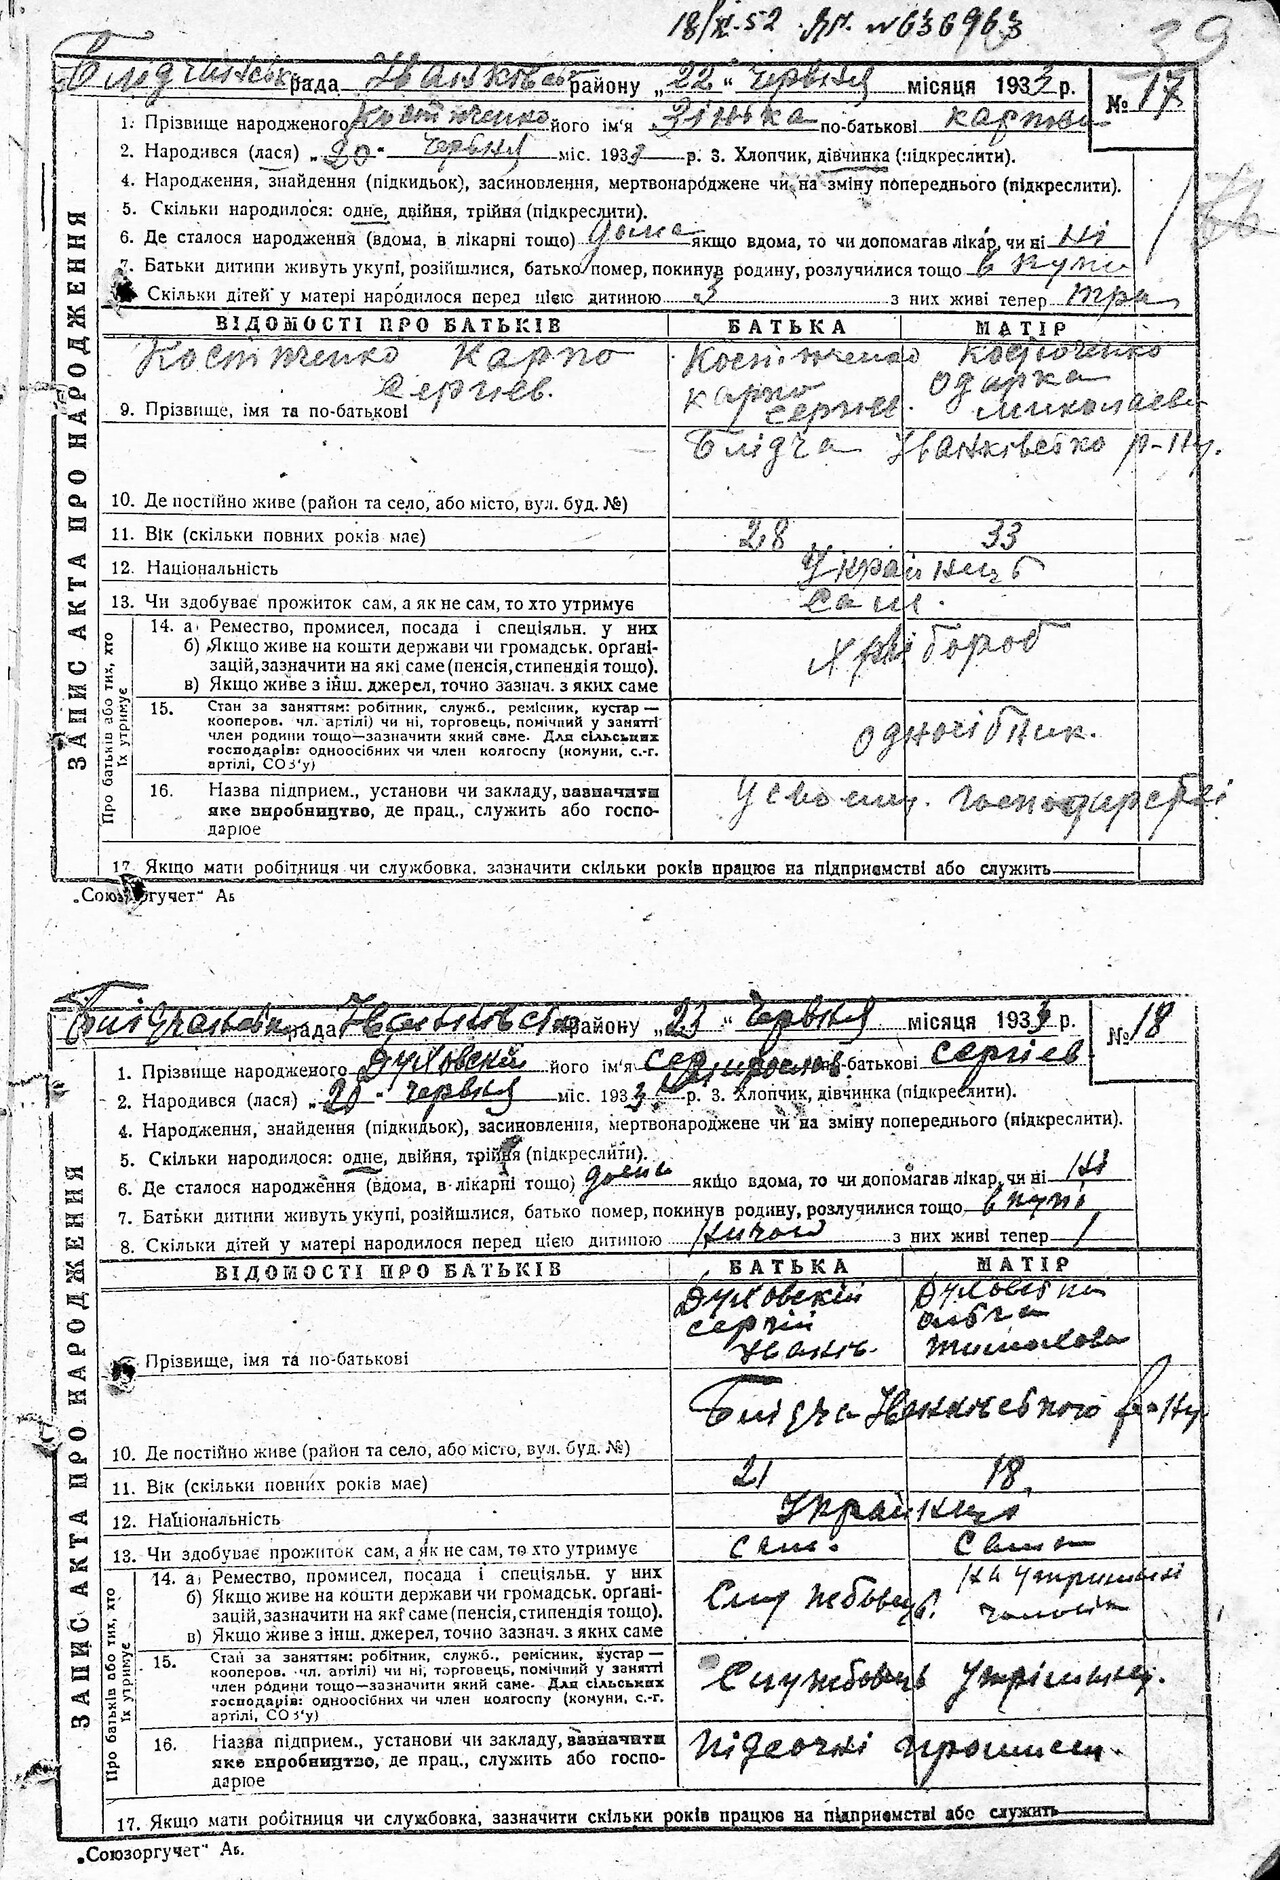 39
Блідчанська рада Іванківськ району „22“ червня місяця 1933 р.
№ 17
1. Прізвище народженого Костюченко його ім'я Зінька по-батькові Карпова
2. Народився (лася) „20“ червня міс. 1933 р. 3. Хлопчик, дівчинка (підкреслити).
4. Народження, знайдення (підкидьок), засиновлення, мертвонароджене чи на зміну попереднього (підкреслити).
5. Скільки народилося: одне, двійня, трійня (підкреслити).
6. Де сталося народження (вдома, в лікарні тощо) дома якщо вдома, то чи допомагав лікар, чи ні Ні
7. Батьки дитини живуть укупі, розійшлися, батько помер, покинув родину, розлучилися тощо в купи
Скільки дітей у матері народилося перед цією дитиною 3 з них живі тепер три
ЗАПИС АКТА ПРО НАРОДЖЕННЯ
ВІДОМОСТІ ПРО БАТЬКІВ БАТЬКА МАТІР
Костюченко Карпо Костюченко Костюченко
Сергієв. Карпо Одарка
9. Прізвище, імя та по-батькові Сергієв. Миколаєва
Блідча Іванківсько р-ну.
10. Де постійно живе (район та село, або місто, вул. буд. №)
11. Вік (скільки повних років має) 28 33
12. Національність Українці
13. Чи здобуває прожиток сам, а як не сам, то хто утримує Сам.
Про батьків або тих, хто їх утримує
14. а) Ремество, промисел, посада і спеціяльн. у них
б) Якщо живе на кошти держави чи громадськ. органі-
зацій, зазначити на які саме (пенсія, стипендія тощо). Хлібороб
в) Якщо живе з інш. джерел, точно зазнач. з яких саме
15. Стан за заняттям: робітник, служб., ремісник, кустар —
кооперов. чл. артілі) чи ні, торговець, помічний у занятті
член родини тощо—зазначити який саме. Для сільських
господарів: одноосібних чи член колгоспу (комуни, с.-г.
артілі, СОЗ'у)
односібник.
16. Назва підприєм., установи чи закладу, зазначити
яке виробництво, де прац., служить або госпо-
дарює
У свому. господарстві
17. Якщо мати робітниця чи службовка, зазначити скільки років працює на підприємстві або служить
„Союзоргучет“ Аб
Блідчанська рада Іванковсько району „23“ червня місяця 1933 р.
№ 18
1. Прізвище народженого Духовскій його ім'я по-батькові Сергієв
2. Народився (лася) „20“ червня міс. 1933 р. 3. Хлопчик, дівчинка (підкреслити).
4. Народження, знайдення (підкидьок), засиновлення, мертвонароджене чи на зміну попереднього (підкреслити).
5. Скільки народилося: одне, двійня, трійня (підкреслити).
6. Де сталося народження (вдома, в лікарні тощо) дома якщо вдома, то чи допомагав лікар, чи ні Ні
7. Батьки дитини живуть укупі, розійшлися, батько помер, покинув родину, розлучилися тощо в купі
8. Скільки дітей у матері народилося перед цією дитиною з них живі тепер 1
ЗАПИС АКТА ПРО НАРОДЖЕННЯ
ВІДОМОСТІ ПРО БАТЬКІВ БАТЬКА МАТІР
Духовскій Духовська
Сергій Ольга
Прізвище, імя та по-батькові Іванів.
Блідча Іванківського р-ну
10. Де постійно живе (район та село, або місто, вул. буд. №)
11. Вік (скільки повних років має) 21 18
12. Національність Українці
13. Чи здобуває прожиток сам, а як не сам, то хто утримує сам. Сама
Про батьків або тих, хто їх утримує
14. а) Ремество, промисел, посада і спеціяльн. у них
б) Якщо живе на кошти держави чи громадськ. органі-
зацій, зазначити на які саме (пенсія, стипендія тощо). Службовець. на утриманні
в) Якщо живе з інш. джерел, точно зазнач. з яких саме
15. Стан за заняттям: робітник, служб., ремісник, кустар —
кооперов. чл. артілі) чи ні, торговець, помічний у занятті
член родини тощо—зазначити який саме. Для сільських
господарів: одноосібних чи член колгоспу (комуни, с.-г.
артілі, СОЗ'у)
Службовець
16. Назва підприєм., установи чи закладу, зазначити
яке виробництво, де прац., служить або госпо-
дарює
Підсочні
17. Якщо мати робітниця чи службовка, зазначити скільки років працює на підприємстві або служить
„Союзоргучет“ Аб.